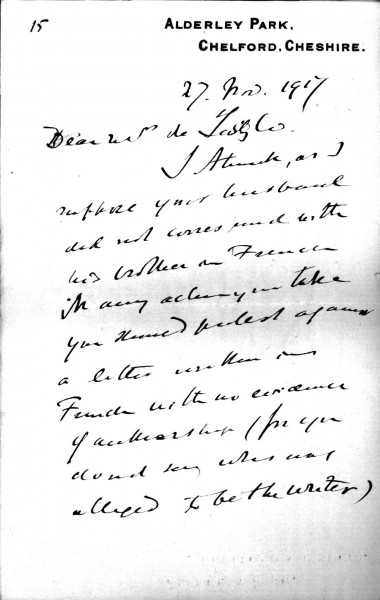 15
ALDERLEY PARK,
CHELFORD, CHESHIRE.
27. Nov. 1917
Dear Mrs de
I think, as I
suppose your husband
did not correspond with
his brother in French
in any action you take
you should protest against
a letter written in
French with no evidence
of authorship (for you
do not say who was
alleged to be the writer)